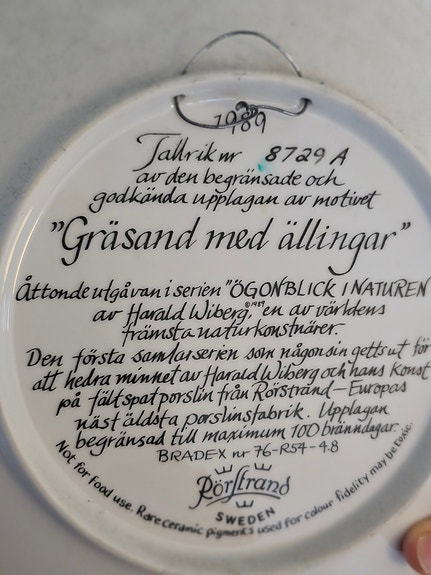 1989
Tallrik nr 8729 A
av den begränsade och
godkända upplagan av motivet
"Gräsand med ällingar"
Åttonde utgåvan i serien "ÖGONBLICK I NATUREN
av Harald Wiberg," ©1989 en av världens
främsta naturkonstnärer.
Den första samlarserien som någonsin getts ut för
att hedra minnet av Harald Wiberg och hans konst
på fältspatporslin från Rörstrand – Europas
näst äldsta porslinsfabrik. Upplagan
begränsad till maximum 100 bränndagar.
BRADEX nr 76-R54-4.8
Rörstrand
SWEDEN
Not for food use. Rare ceramic pigments used for colour fidelity may be toxic.